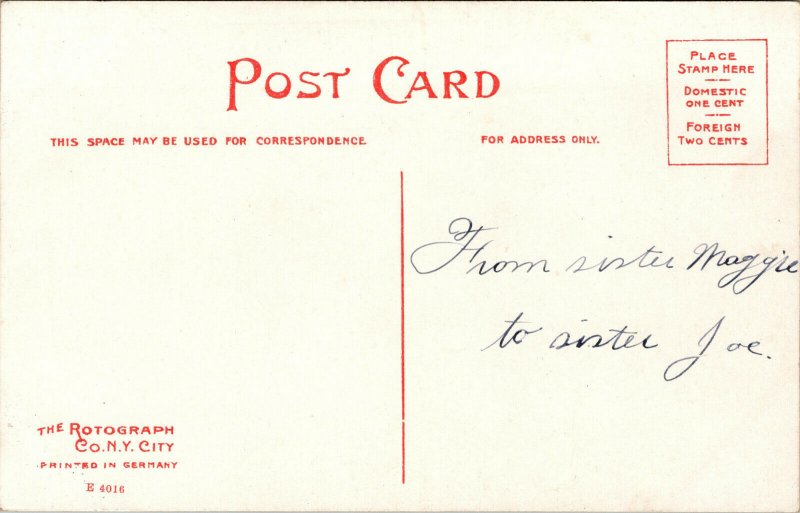 POST CARD
PLACE
STAMP HERE
DOMESTIC
ONE CENT
FOREIGN
TWO CENTS
THIS SPACE MAY BE USED FOR CORRESPONDENCE
FOR ADDRESS ONLY.
From sister Maggie
to sister Joe.
THE ROTOGRAPH
CO. N.Y. CITY
PRINTED IN GERMANY
E 4016